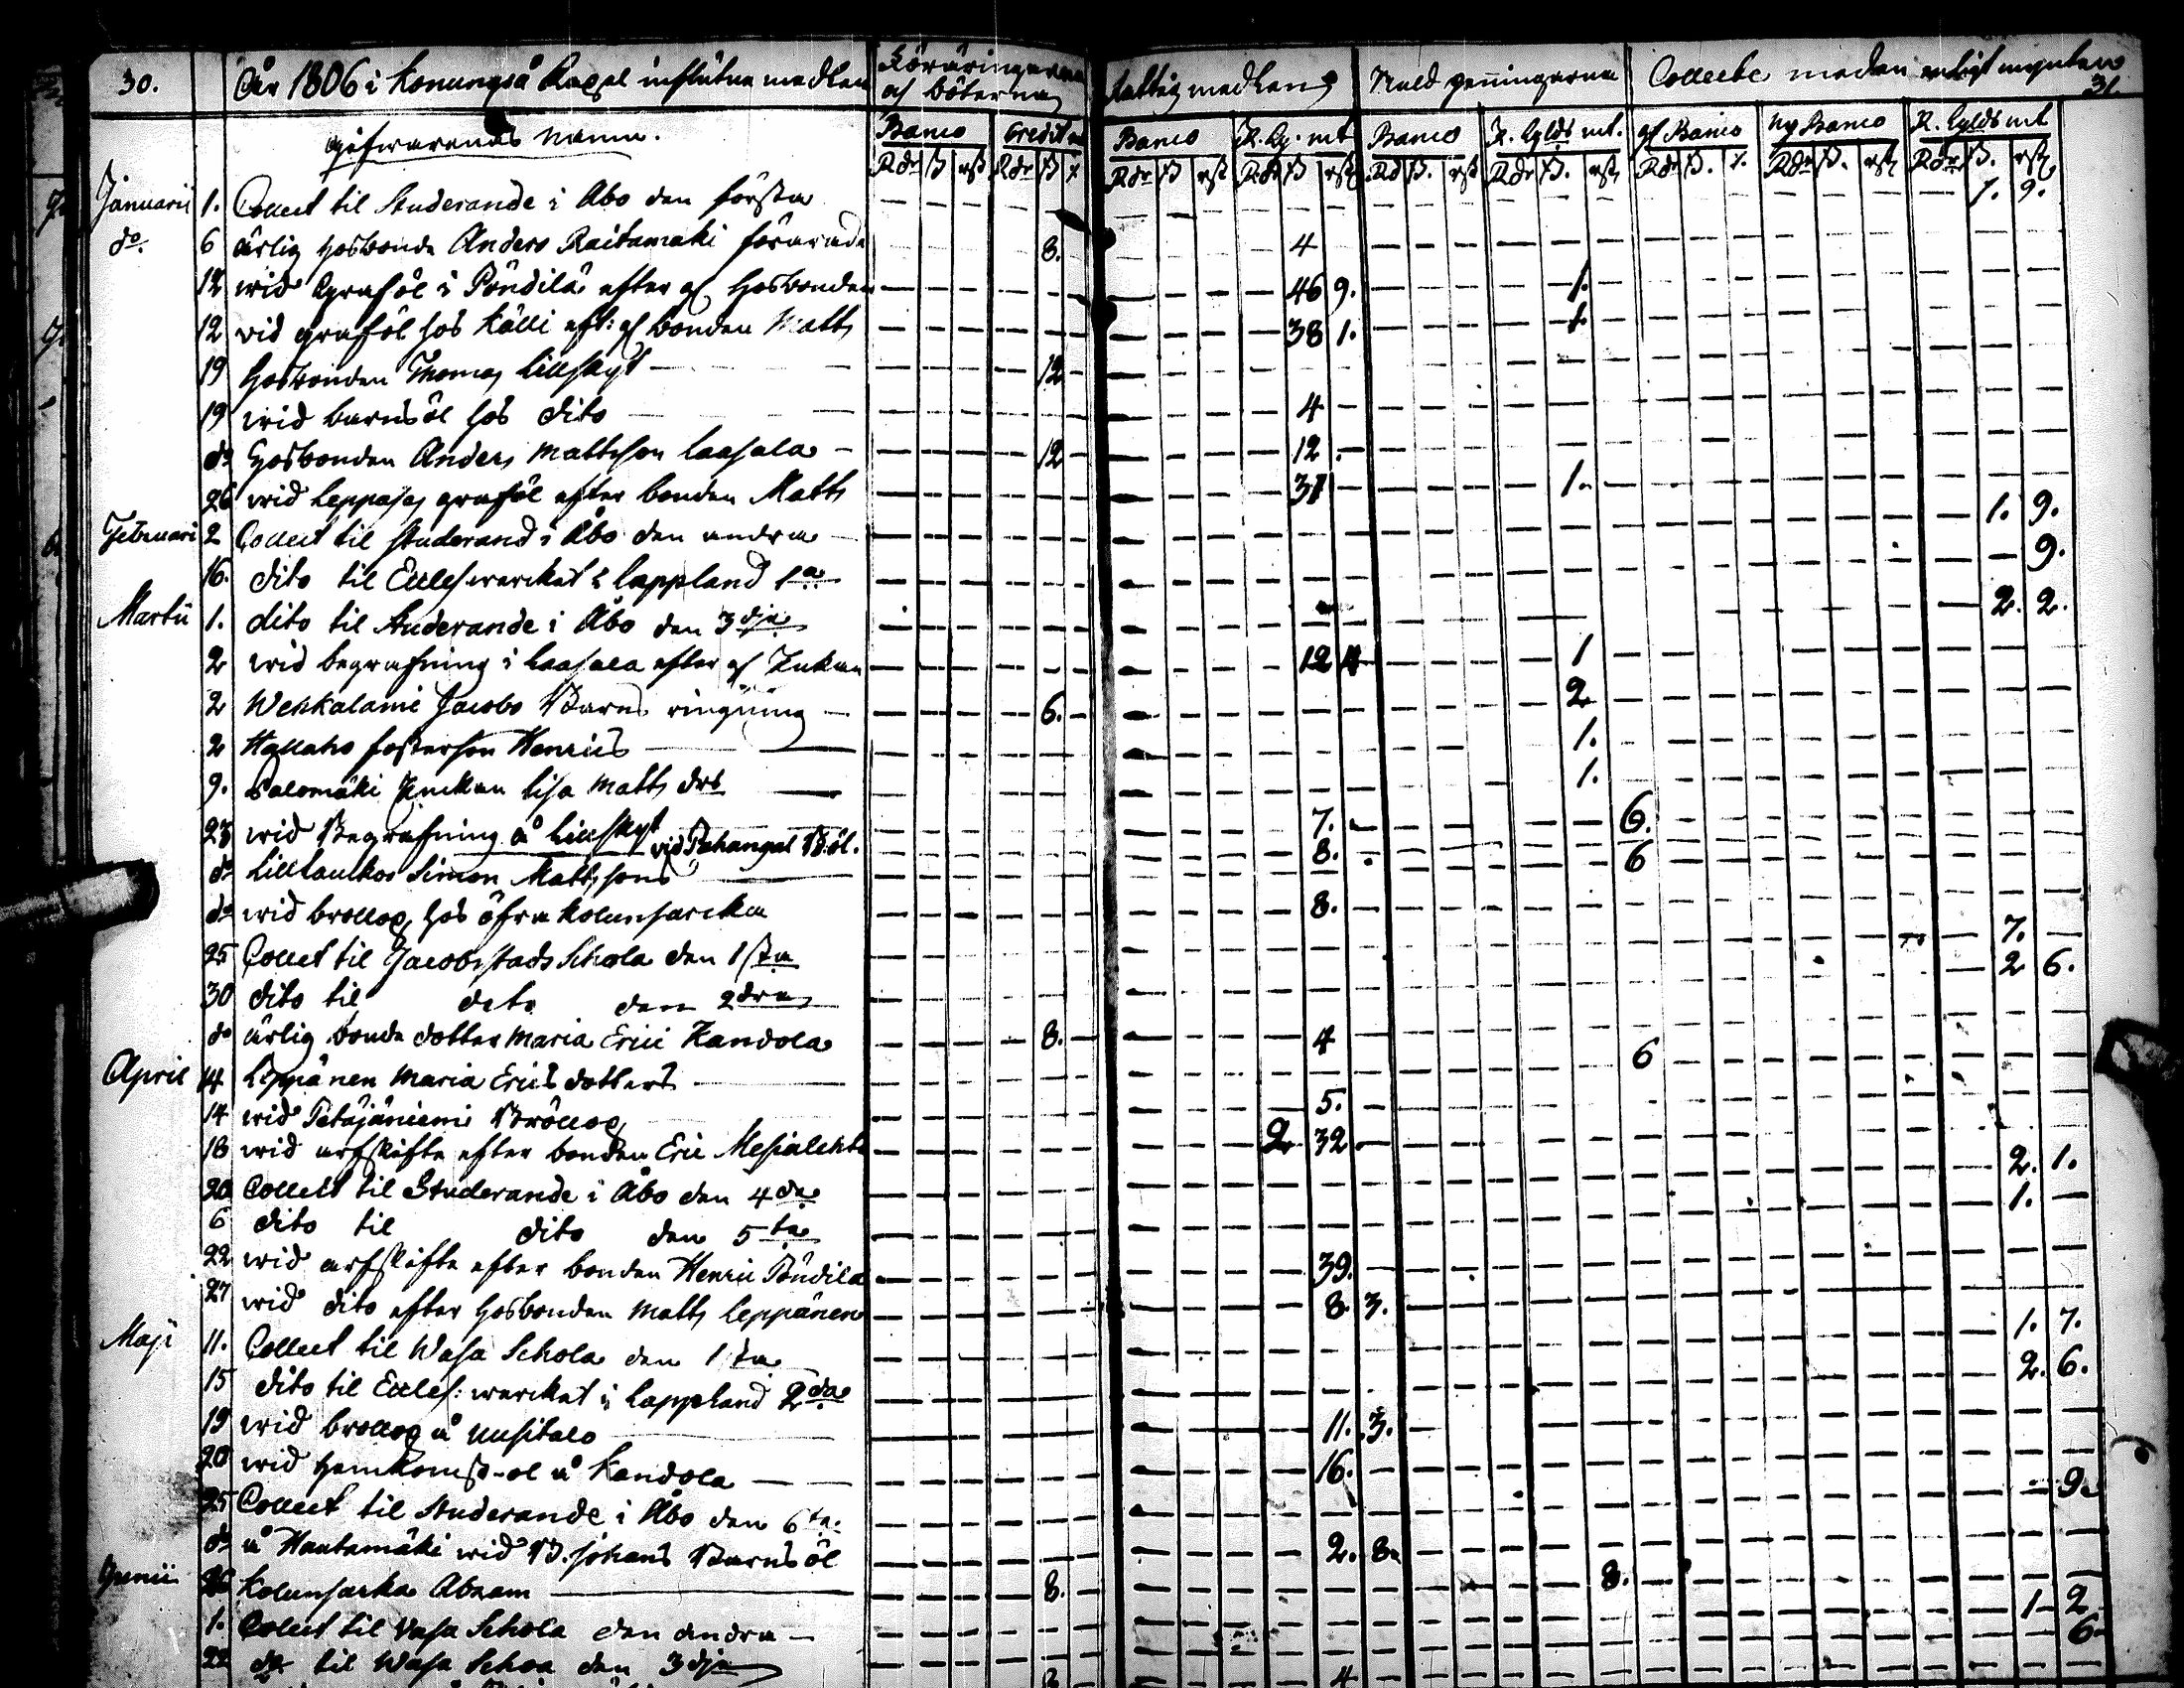 30. År 1806 i Konungså Capel influtna medlen Föräringarna Fattig medlen Kuld penningarna Collecte meden enligt mynten 31.
gifwarendes namn. og böterna
Banco Credit Banco R. Gz. mt Banco R. Gylds mt. gl Banco Ny Banco R. Gylds mt
Januarii 1. Collect til Studerande i Åbo den första 1. 9.
do. 6 ärlig hosbonde Anders Raitamaki förärade 8. 4
12 wid Grafol i Pöndilä efter gl hosbonden 46 9. 1.
12 vid grafol hos Källi eft: gl bonden Matts 38 1. 1.
19 Hosbonden Thomas Lillskyt 12
19 wid barnsöl hos dito 4
do Hosbonden Anders Mattsson Laasala 12 12
26 wid Leppajas grafol efter bonden Matts 31 1.
Februari 2 Collect til studerand i Åbo den andra 1. 9.
16. dito til Eccleswercket i Lappland 1a 9.
Martii 1. dito til Studerande i Åbo den 3dje 2. 2.
2 wid begrafning i Laasala efter gl Enkan 12 1
2 Wehkalami Jacobs Barns ringning 6. 2
2 fosterson Henrics 1.
9. Salomäki Enckan Lisa Matts dr 1.
23 wid Begrafning å Lillskyt 7. 6.
vid B:öl. 8. 6
do Simon Mattssons
do wid brollop hos öfra Kolunsarcka 8.
25 Collect til Jacobstads Schola den 1sta 7.
30 dito til dito den 2dra 2 6.
do ärlig bonde dotter Maria Erici Kandola 8. 4
April 14 Leppänen Maria Erics dotters 6
14 wid Petäjäniemi Bröllop 5.
18 wid arfskifte efter bonden Eric 2 32
20 Collect til Studerande i Åbo den 4de 2. 1.
6 dito til dito den 5ta 1.
22 wid arfskifte efter bonden Henric Pöndilä 39.
27 wid dito efter hosbonden Matts Leppänen 8 3.
Maji 11. Collect til Wasa Schola den 1sta 1. 7.
15 dito til Eccles: wercket i Lappland 2da 2. 6.
19 wid brollop å Uusitalo 11. 3.
20 wid hemkomst-ol å Kandola 16.
25 Collect til Studerande i Åbo den 6ta 9.
do å Hautamäki wid B. Johans Barns öl 2. 8.
26 Kolunsarka Abram 8. 8.
Junii 1. Collect til Vasa Schola den andra 1 2
22 do til Wasa Schoa den 3dje 6.
4